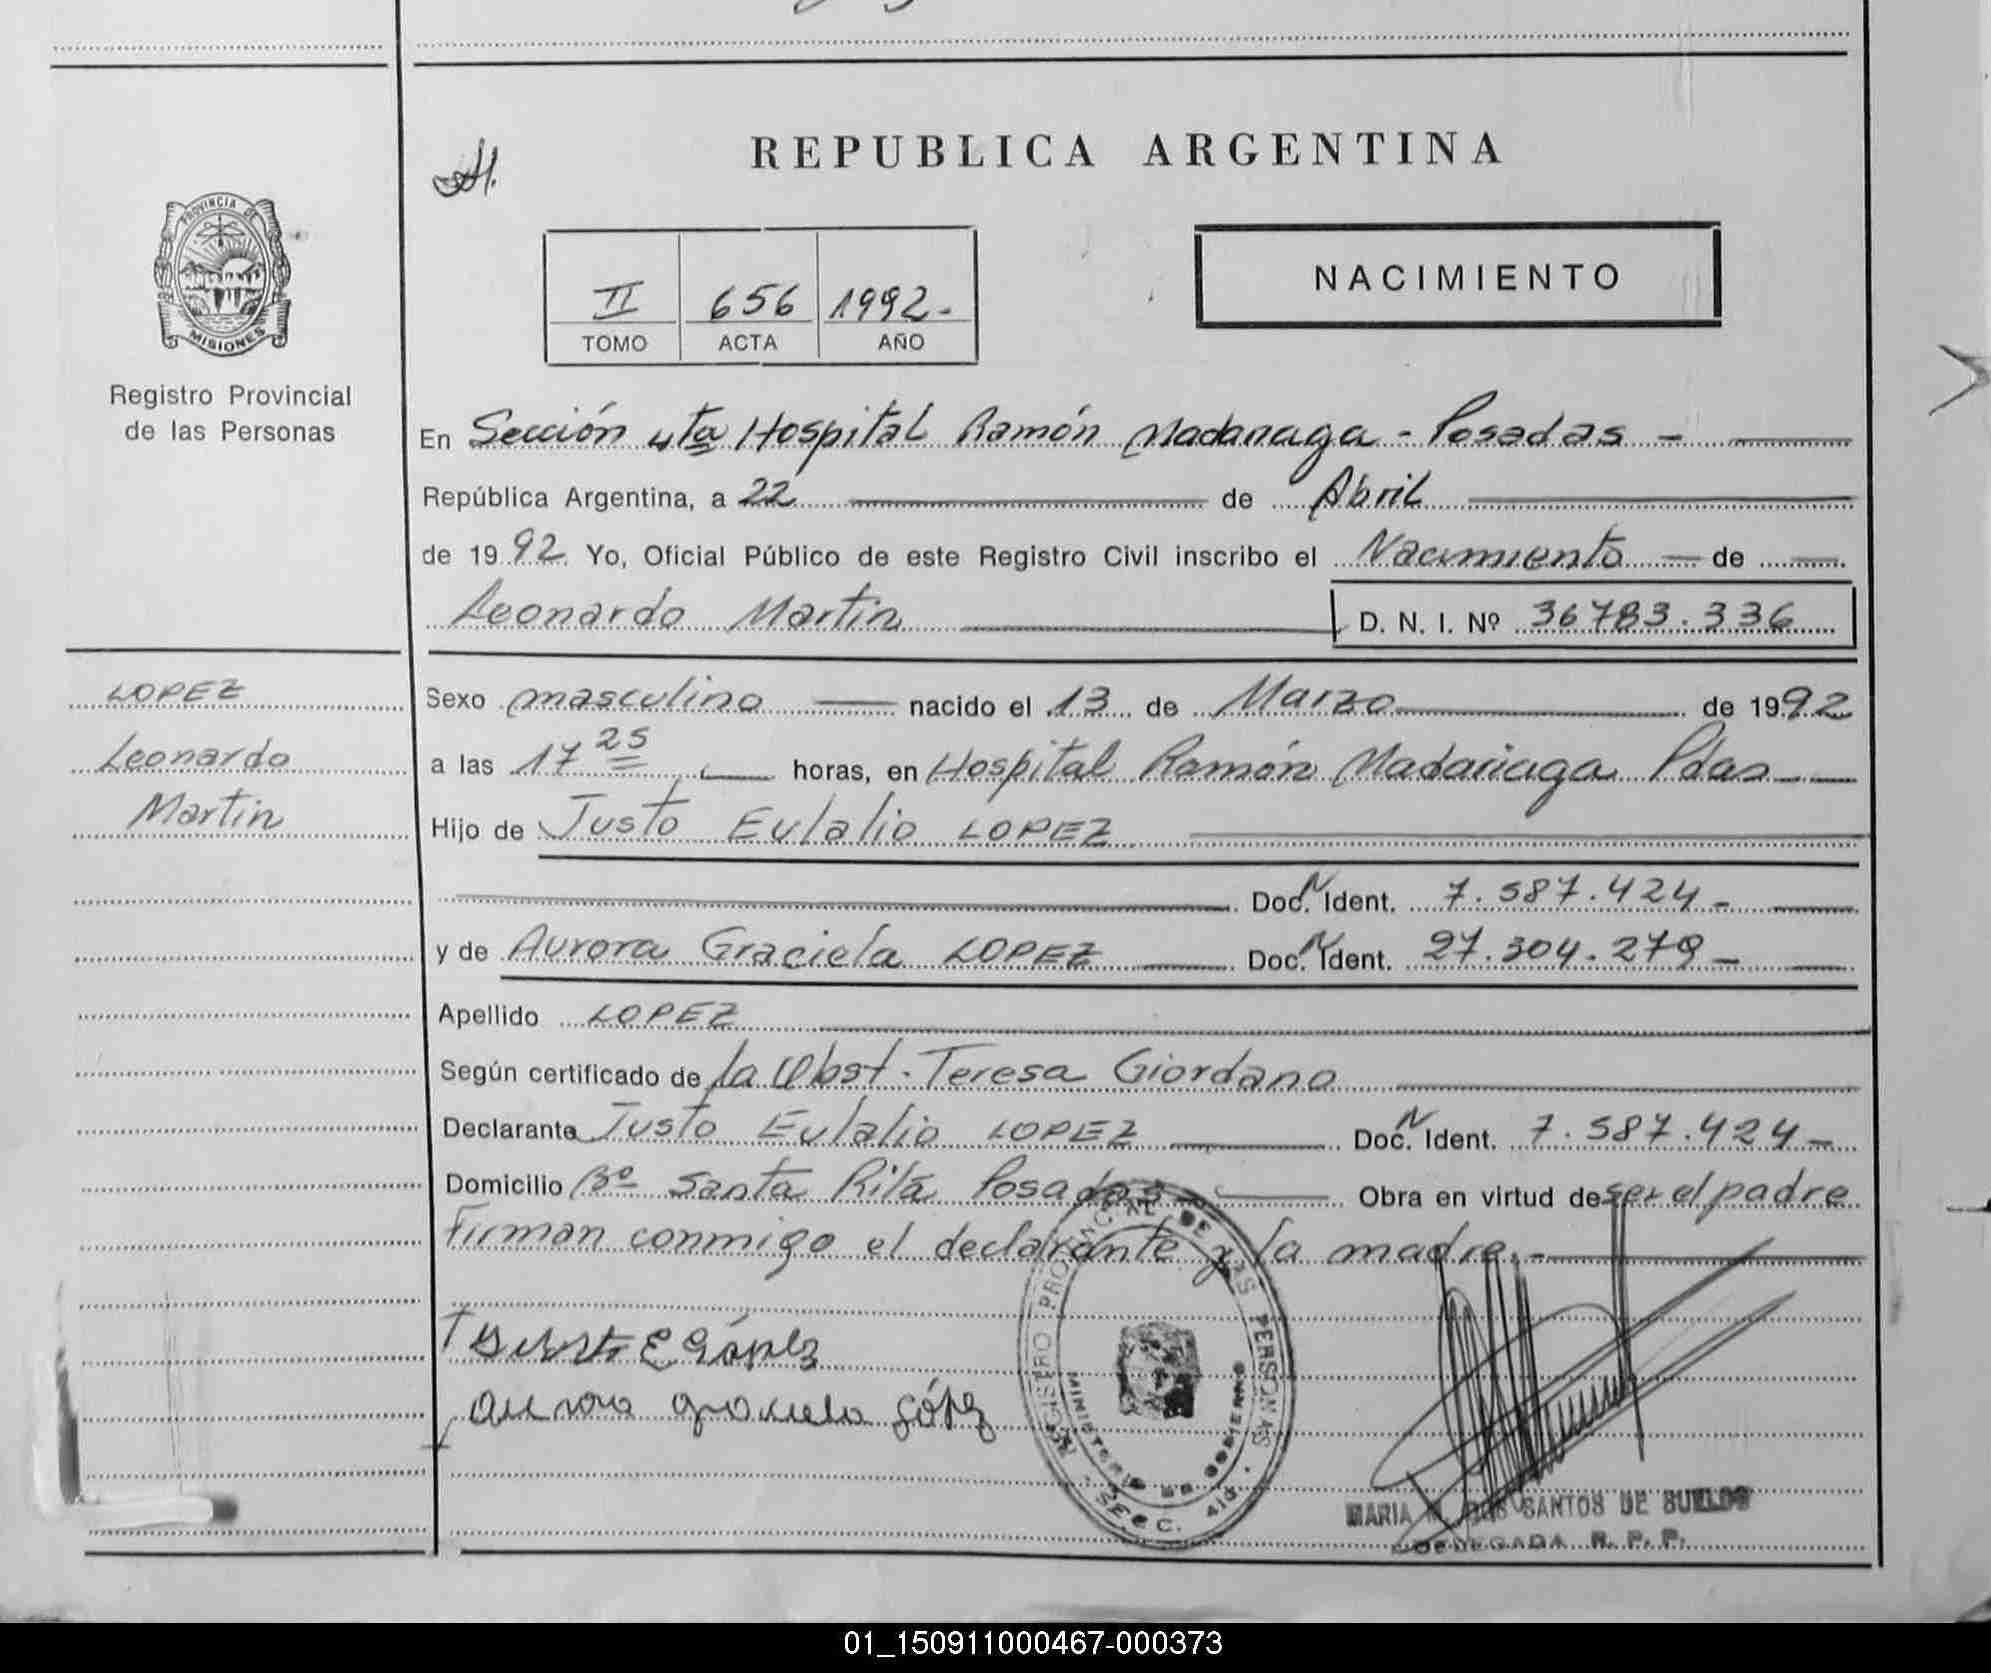 REPUBLICA ARGENTINA
PROVINCIA DE
MISIONES
Registro Provincial
de las Personas
II 656 1992-
TOMO ACTA AÑO
NACIMIENTO
En Sección 4ta Hospital Ramón Madariaga - Posadas -
República Argentina, a 22 de Abril
de 1992. Yo, Oficial Público de este Registro Civil inscribo el Nacimiento de
Leonardo Martin D. N. I. Nº 36783.336
LOPEZ
Leonardo
Martin
Sexo masculino nacido el 13 de Marzo de 1992
a las 17 25 horas, en Hospital Ramón Madariaga Pdas
Hijo de Justo Eulalio LOPEZ
Doc. N Ident. 7.587.424-
y de Aurora Graciela LOPEZ Doc. N Ident. 27.304.279-
Apellido LOPEZ
Según certificado de la Obst. Teresa Giordano
Declarante Justo Eulalio LOPEZ Doc. N Ident. 7.587.424-
Domicilio Bº Santa Rita Posadas Obra en virtud de ser el padre
Firman conmigo el declarante y la madre.-
Justo E López
Aurora Graciela López
REGISTRO PROVINCIAL DE LAS PERSONAS
MINISTERIO DE GOBIERNO
SECC. 4ta.
MARIA DOS SANTOS DE SUELDO
DELEGADA R. P. P.
01_150911000467-000373